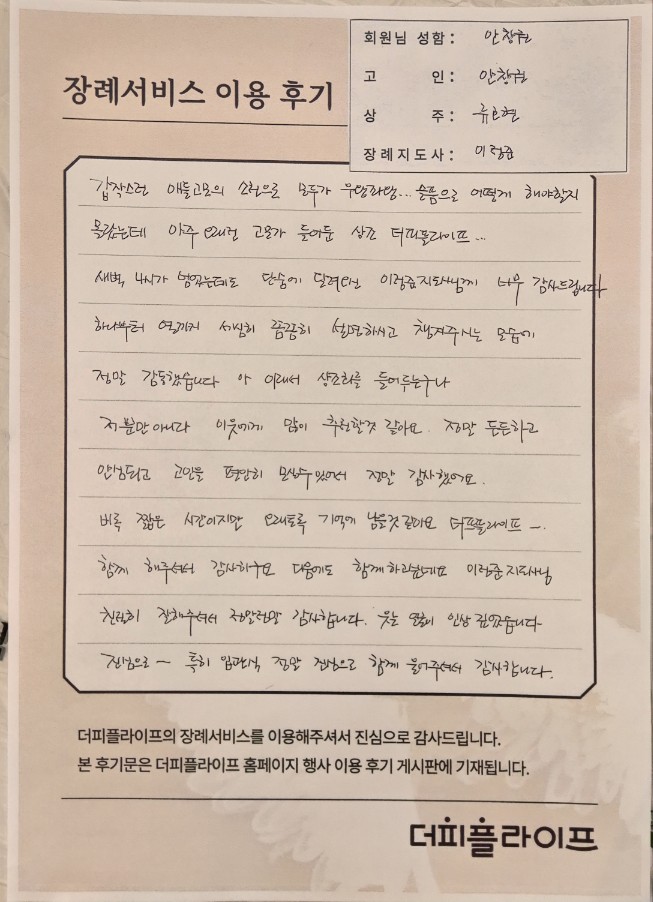 회원님 성함 : 안창현
고 인 : 안창현
상 주 : 류현
장례지도사 : 이정준
장례서비스 이용 후기
갑작스런 소천으로 모두가 우왕좌왕... 슬픔으로 어떻게 해야할지
몰랐는데 아주 오래전 고모가 들어둔 상조 더피플라이프...
새벽 4시가 넘었는데도 단숨에 달려오신 이정준지도사님께 너무 감사드립니다
하나부터 열까지 세심히 꼼꼼히 설명하시고 챙겨주시는 모습에
정말 감동했습니다 아 이래서 상조회를 들어두는구나
저뿐만 아니라 이웃에게 많이 추천할것 같아요. 정말 든든하고
안심되고 고인을 평안히 모실수있어서 정말 감사했어요.
비록 짧은 시간이지만 오래토록 기억에 남을것같아요 더피플라이프 ~.
함께 해주셔서 감사하구요 다음에도 함께하고싶네요 이정준지도사님
친절히 잘해주셔서 정말정말 감사합니다. 인상 깊었습니다
진심으로 ~ 특히 입관식 정말 진심으로 함께 울어주셔서 감사합니다.
더피플라이프의 장례서비스를 이용해주셔서 진심으로 감사드립니다.
본 후기문은 더피플라이프 홈페이지 행사 이용 후기 게시판에 기재됩니다.
더피플라이프